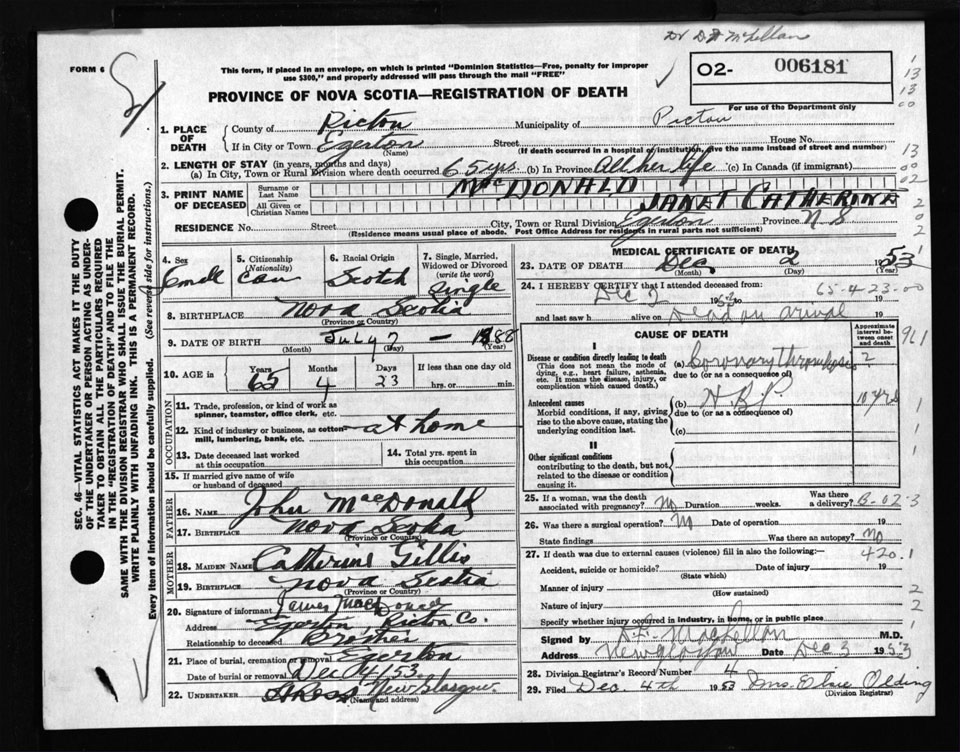 Dr D.F. McLellan
FORM 6
This form, if placed in an envelope, on which is printed "Dominion Statistics—Free, penalty for improper use $300," and properly addressed will pass through the mail "FREE"
O2- 006181
For use of the Department only
PROVINCE OF NOVA SCOTIA—REGISTRATION OF DEATH
1. PLACE OF DEATH County of Pictou Municipality of Pictou
If in City or Town Egerton (Name) Street House No.
(If death occurred in a hospital or institution, give the name instead of street and number)
2. LENGTH OF STAY (in years, months and days)
(a) In City, Town or Rural Division where death occurred 65 yrs (b) In Province All her life (c) In Canada (if immigrant)
3. PRINT NAME OF DECEASED Surname or Last Name MacDONALD
All Given or Christian Names JANET CATHERINE
RESIDENCE No. Street City, Town or Rural Division Egerton Province N S
(Residence means usual place of abode. Post Office Address for residents in rural parts not sufficient)
4. Sex Female
5. Citizenship (Nationality) Can
6. Racial Origin Scotch
7. Single, Married, Widowed or Divorced (write the word) Single
8. BIRTHPLACE Nova Scotia (Province or Country)
9. DATE OF BIRTH July 9 - 1888
(Month) (Day) (Year)
10. AGE in Years 65 Months 4 Days 23 If less than one day hrs. or min.
OCCUPATION
11. Trade, profession, or kind of work as spinner, teamster, office clerk, etc.
12. Kind of industry or business, as cotton mill, lumbering, bank, etc. at home
13. Date deceased last worked at this occupation
14. Total yrs. spent in this occupation
15. If married give name of wife or husband of deceased
FATHER
16. Name John MacDonald
17. Birthplace Nova Scotia (Province or Country)
MOTHER
18. MAIDEN NAME Catherine Gillis
19. BIRTHPLACE Nova Scotia (Province or Country)
20. Signature of informant James MacDonald
Address Egerton Pictou Co.
Relationship to deceased Brother
21. Place of burial, cremation or removal Egerton
Date of burial or removal Dec 4/53
22. UNDERTAKER New Glasgow (Name and address)
MEDICAL CERTIFICATE OF DEATH
23. DATE OF DEATH Dec. 2 1953
(Month) (Day) (Year)
24. I HEREBY CERTIFY that I attended deceased from:
65-4-23-00
Dec 2 1953 to 19
and last saw h alive on Dead on arrival 19
CAUSE OF DEATH
Approximate interval between onset and death
I
Disease or condition directly leading to death (This does not mean the mode of dying, e.g., heart failure, asthenia, etc. It means the disease, injury, or complication which caused death.)
(a) Coronary Thrombosis ?
due to (or as a consequence of)
Antecedent causes
Morbid conditions, if any, giving rise to the above cause, stating the underlying condition last.
(b) H.B.P. 10 yrs
due to (or as a consequence of)
(c)
II
Other significant conditions contributing to the death, but not related to the disease or condition causing it.
25. If a woman, was the death associated with pregnancy? No Duration weeks. Was there a delivery?
B-02-3
26. Was there a surgical operation? No Date of operation 19
State findings Was there an autopsy? No
27. If death was due to external causes (violence) fill in also the following:—
420.1
Accident, suicide or homicide? (State which) Date of injury 19
Manner of injury (How sustained)
Nature of injury
Specify whether injury occurred in industry, in home, or in public place
Signed by D.F. MacLellan M.D.
Address New Glasgow Date Dec 3 1953
28. Division Registrar's Record Number 4
29. Filed Dec. 4th 1953 Mrs. Elsie Olding
(Division Registrar)
SEC. 46—VITAL STATISTICS ACT MAKES IT THE DUTY OF THE UNDERTAKER OR PERSON ACTING AS UNDERTAKER TO OBTAIN ALL THE PARTICULARS REQUIRED IN THE "REGISTRATION OF DEATH" AND TO FILE THE SAME WITH THE DIVISION REGISTRAR WHO SHALL ISSUE THE BURIAL PERMIT.
WRITE PLAINLY WITH UNFADING INK. THIS IS A PERMANENT RECORD.
Every item of information should be carefully supplied. (See reverse side for instructions.)